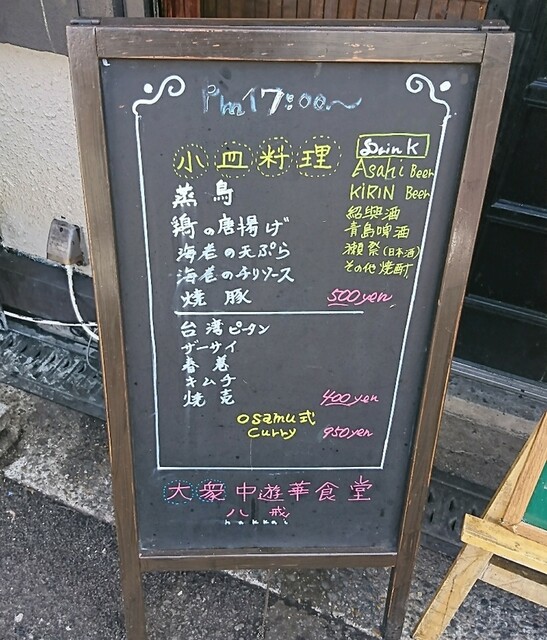 Pm17:00～
小皿料理
蒸鳥
鶏の唐揚げ
海老の天ぷら
海老のチリソース
焼豚 500yen
台湾ピータン
ザーサイ
春巻
キムチ
焼売 400yen
osamu式
Curry 950yen
Drink
Asahi Beer
KIRIN Beer
紹興酒
青島啤酒
獺祭(日本酒)
その他焼酎
大衆中遊華食堂
八戒
hakkai